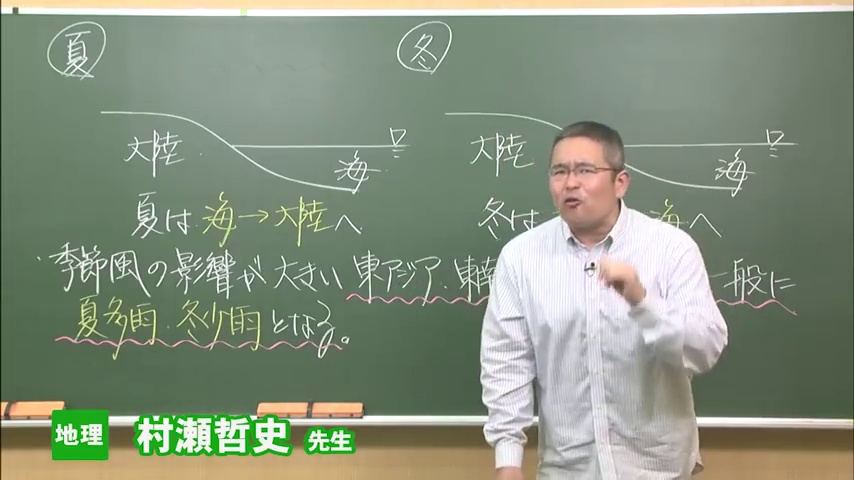 夏
冬
大陸
海
大陸
海
夏は海→大陸へ
冬は 海へ
季節風の影響が大きい東アジア・東南 一般に
夏多雨、冬少雨となる。
地理 村瀬哲史 先生